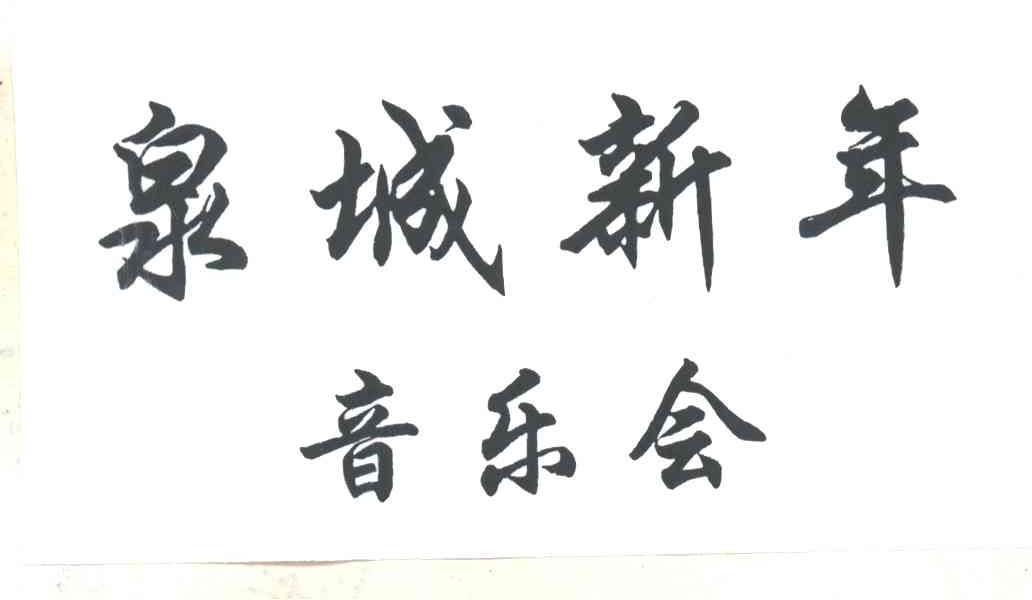 泉城新年
音乐会